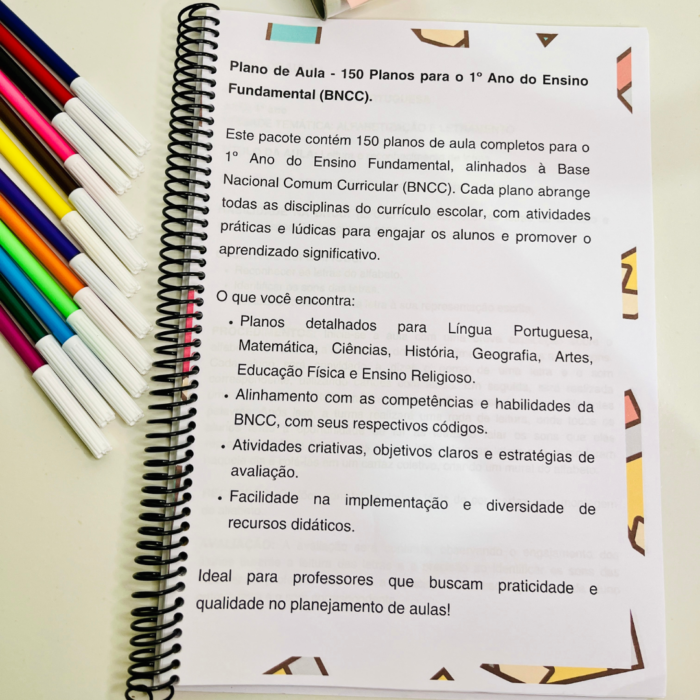 Plano de Aula - 150 Planos para o 1º Ano do Ensino
Fundamental (BNCC).
Este pacote contém 150 planos de aula completos para o
1º Ano do Ensino Fundamental, alinhados à Base
Nacional Comum Curricular (BNCC). Cada plano abrange
todas as disciplinas do currículo escolar, com atividades
práticas e lúdicas para engajar os alunos e promover o
aprendizado significativo.
O que você encontra:
• Planos detalhados para Língua Portuguesa,
Matemática, Ciências, História, Geografia, Artes,
Educação Física e Ensino Religioso.
• Alinhamento com as competências e habilidades da
BNCC, com seus respectivos códigos.
• Atividades criativas, objetivos claros e estratégias de
avaliação.
• Facilidade na implementação e diversidade de
recursos didáticos.
Ideal para professores que buscam praticidade e
qualidade no planejamento de aulas!